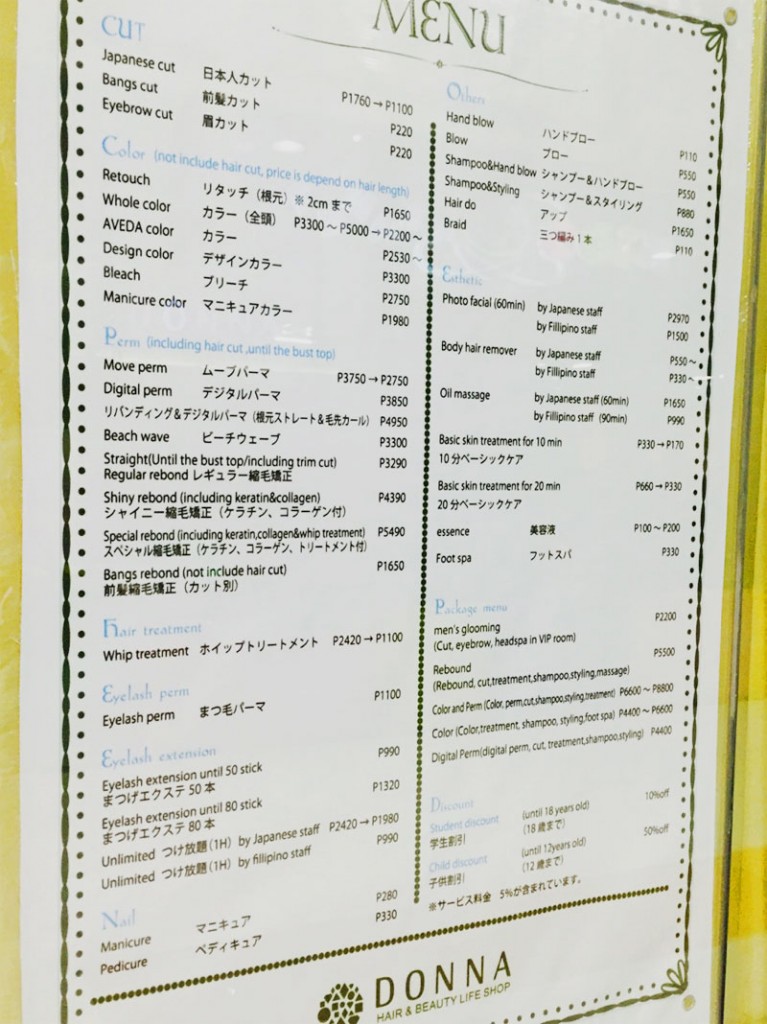 MENU
CUT
Japanese cut 日本人カット P1760 → P1100
Bangs cut 前髪カット P220
Eyebrow cut 眉カット P220
Color (not include hair cut, price is depend on hair length)
Retouch リタッチ（根元）※ 2cm まで P1650
Whole color カラー（全頭） P3300 ～ P5000 → P2200 ～
AVEDA color カラー P2530 ～
Design color デザインカラー P3300
Bleach ブリーチ P2750
Manicure color マニキュアカラー P1980
Perm (including hair cut ,until the bust top)
Move perm ムーブパーマ P3750 → P2750
Digital perm デジタルパーマ P3850
リバンディング＆デジタルパーマ（根元ストレート＆毛先カール） P4950
Beach wave ビーチウェーブ P3300
Straight(Until the bust top/including trim cut) P3290
Regular rebond レギュラー縮毛矯正
Shiny rebond (including keratin&collagen) P4390
シャイニー縮毛矯正（ケラチン、コラーゲン付）
Special rebond (including keratin,collagen&whip treatment) P5490
スペシャル縮毛矯正（ケラチン、コラーゲン、トリートメント付）
Bangs rebond (not include hair cut) P1650
前髪縮毛矯正（カット別）
Hair treatment
Whip treatment ホイップトリートメント P2420 → P1100
Eyelash perm
Eyelash perm まつ毛パーマ P1100
Eyelash extension
Eyelash extension until 50 stick P990
まつげエクステ 50 本
Eyelash extension until 80 stick P1320
まつげエクステ 80 本
Unlimited つけ放題（1H）by Japanese staff P2420 → P1980
Unlimited つけ放題（1H）by fillipino staff P990
Nail
Manicure マニキュア P280
Pedicure ペディキュア P330
Others
Hand blow ハンドブロー P110
Blow ブロー P550
Shampoo&Hand blow シャンプー＆ハンドブロー P550
Shampoo&Styling シャンプー＆スタイリング P880
Hair do アップ P1650
Braid 三つ編み 1 本 P110
Esthetic
Photo facial (60min) by Japanese staff P2970
by Fillipino staff P1500
Body hair remover by Japanese staff P550 ～
by Fillipino staff P330 ～
Oil massage by Japanese staff (60min) P1650
by Fillipino staff (90min) P990
Basic skin treatment for 10 min P330 → P170
10 分ベーシックケア
Basic skin treatment for 20 min P660 → P330
20 分ベーシックケア
essence 美容液 P100 ～ P200
Foot spa フットスパ P330
Package menu
men's glooming P2200
(Cut, eyebrow, headspa in VIP room)
Rebound P5500
(Rebound, cut,treatment,shampoo,styling,massage)
Color and Perm (Color, perm,cut,shampoo,styling,treatment) P6600 ～ P8800
Color (Color,treatment, shampoo, styling,foot spa) P4400 ～ P6600
Digital Perm(digital perm, cut, treatment,shampoo,styling) P4400
Discount
Student discount (until 18 years old) 10%off
学生割引 (18 歳まで)
Child discount (until 12years old) 50%off
子供割引 (12 歳まで)
※サービス料金 5%が含まれています。
DONNA
HAIR & BEAUTY LIFE SHOP